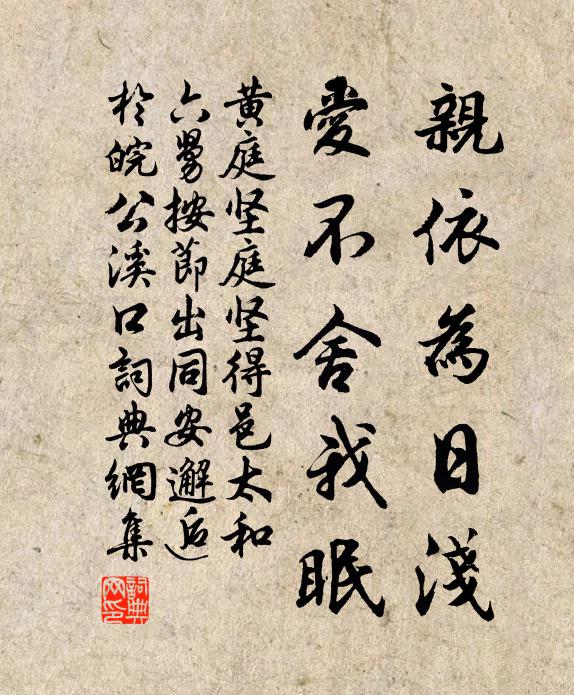 親依為日淺
愛不舍我眠
黃庭坚庭坚得邑太和
六舅按節出同安邂逅
於皖公溪口詞典網集
詞典